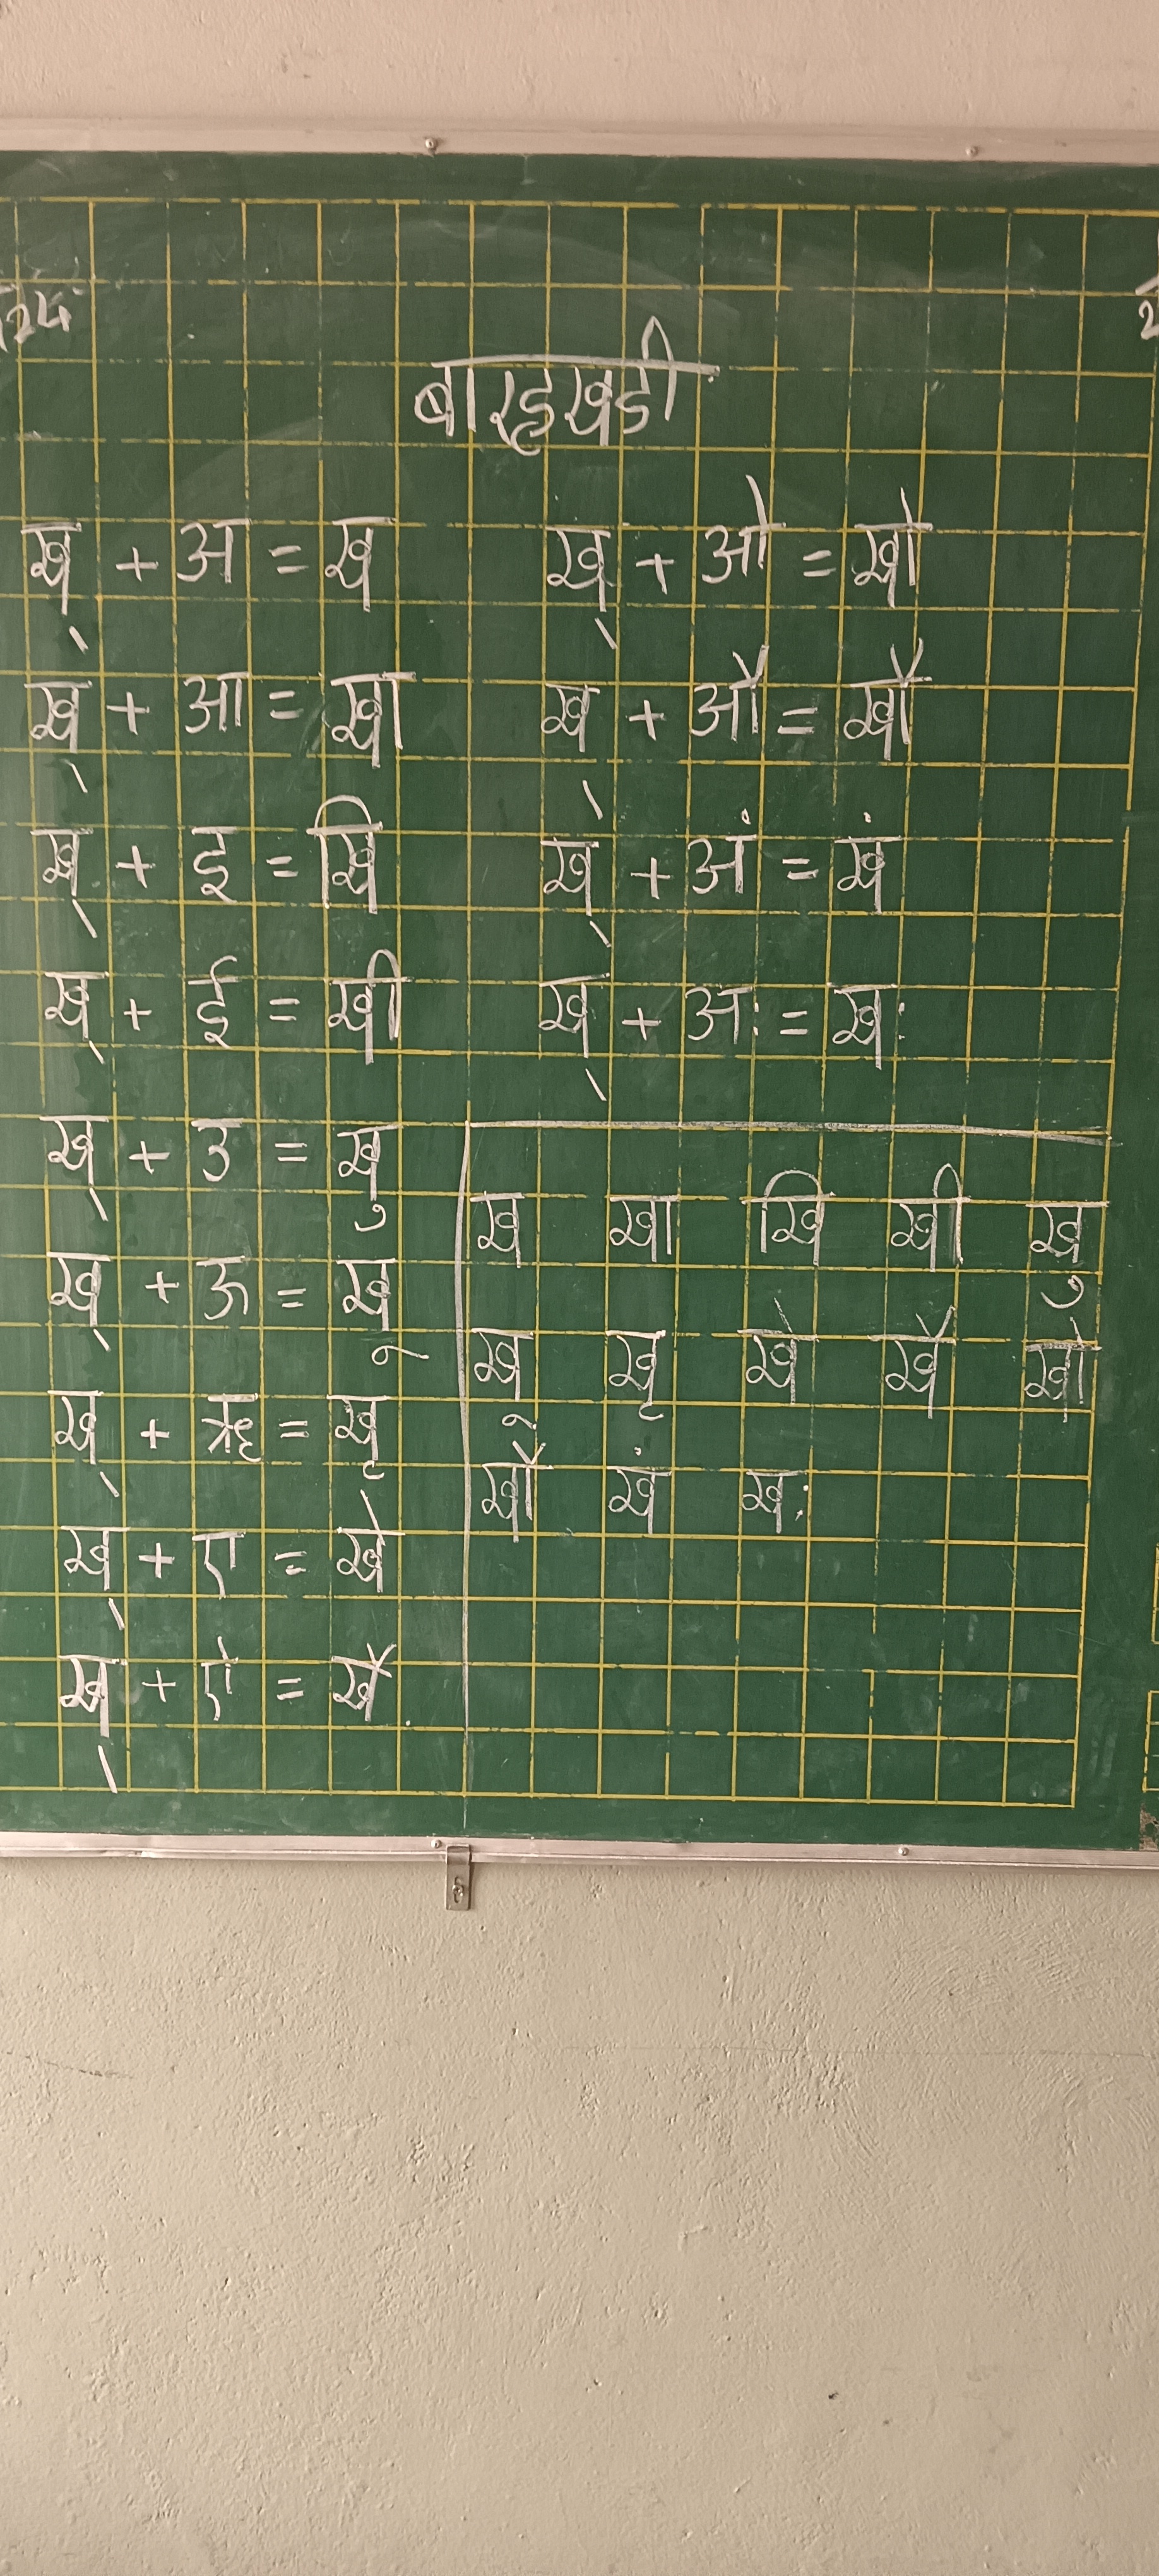 बारहखडी
ख् + अ = ख
ख् + आ = खा
ख् + इ = खि
ख् + ई = खी
ख् + उ = खु
ख् + ऊ = खू
ख् + ऋ = खृ
ख् + ए = खे
ख् + ऐ = खै
ख् + ओ = खो
ख् + औ = खौ
ख् + अं = खं
ख् + अः = खः
ख खा खि खी खु
खू खृ खे खै खो
खौ खं खः